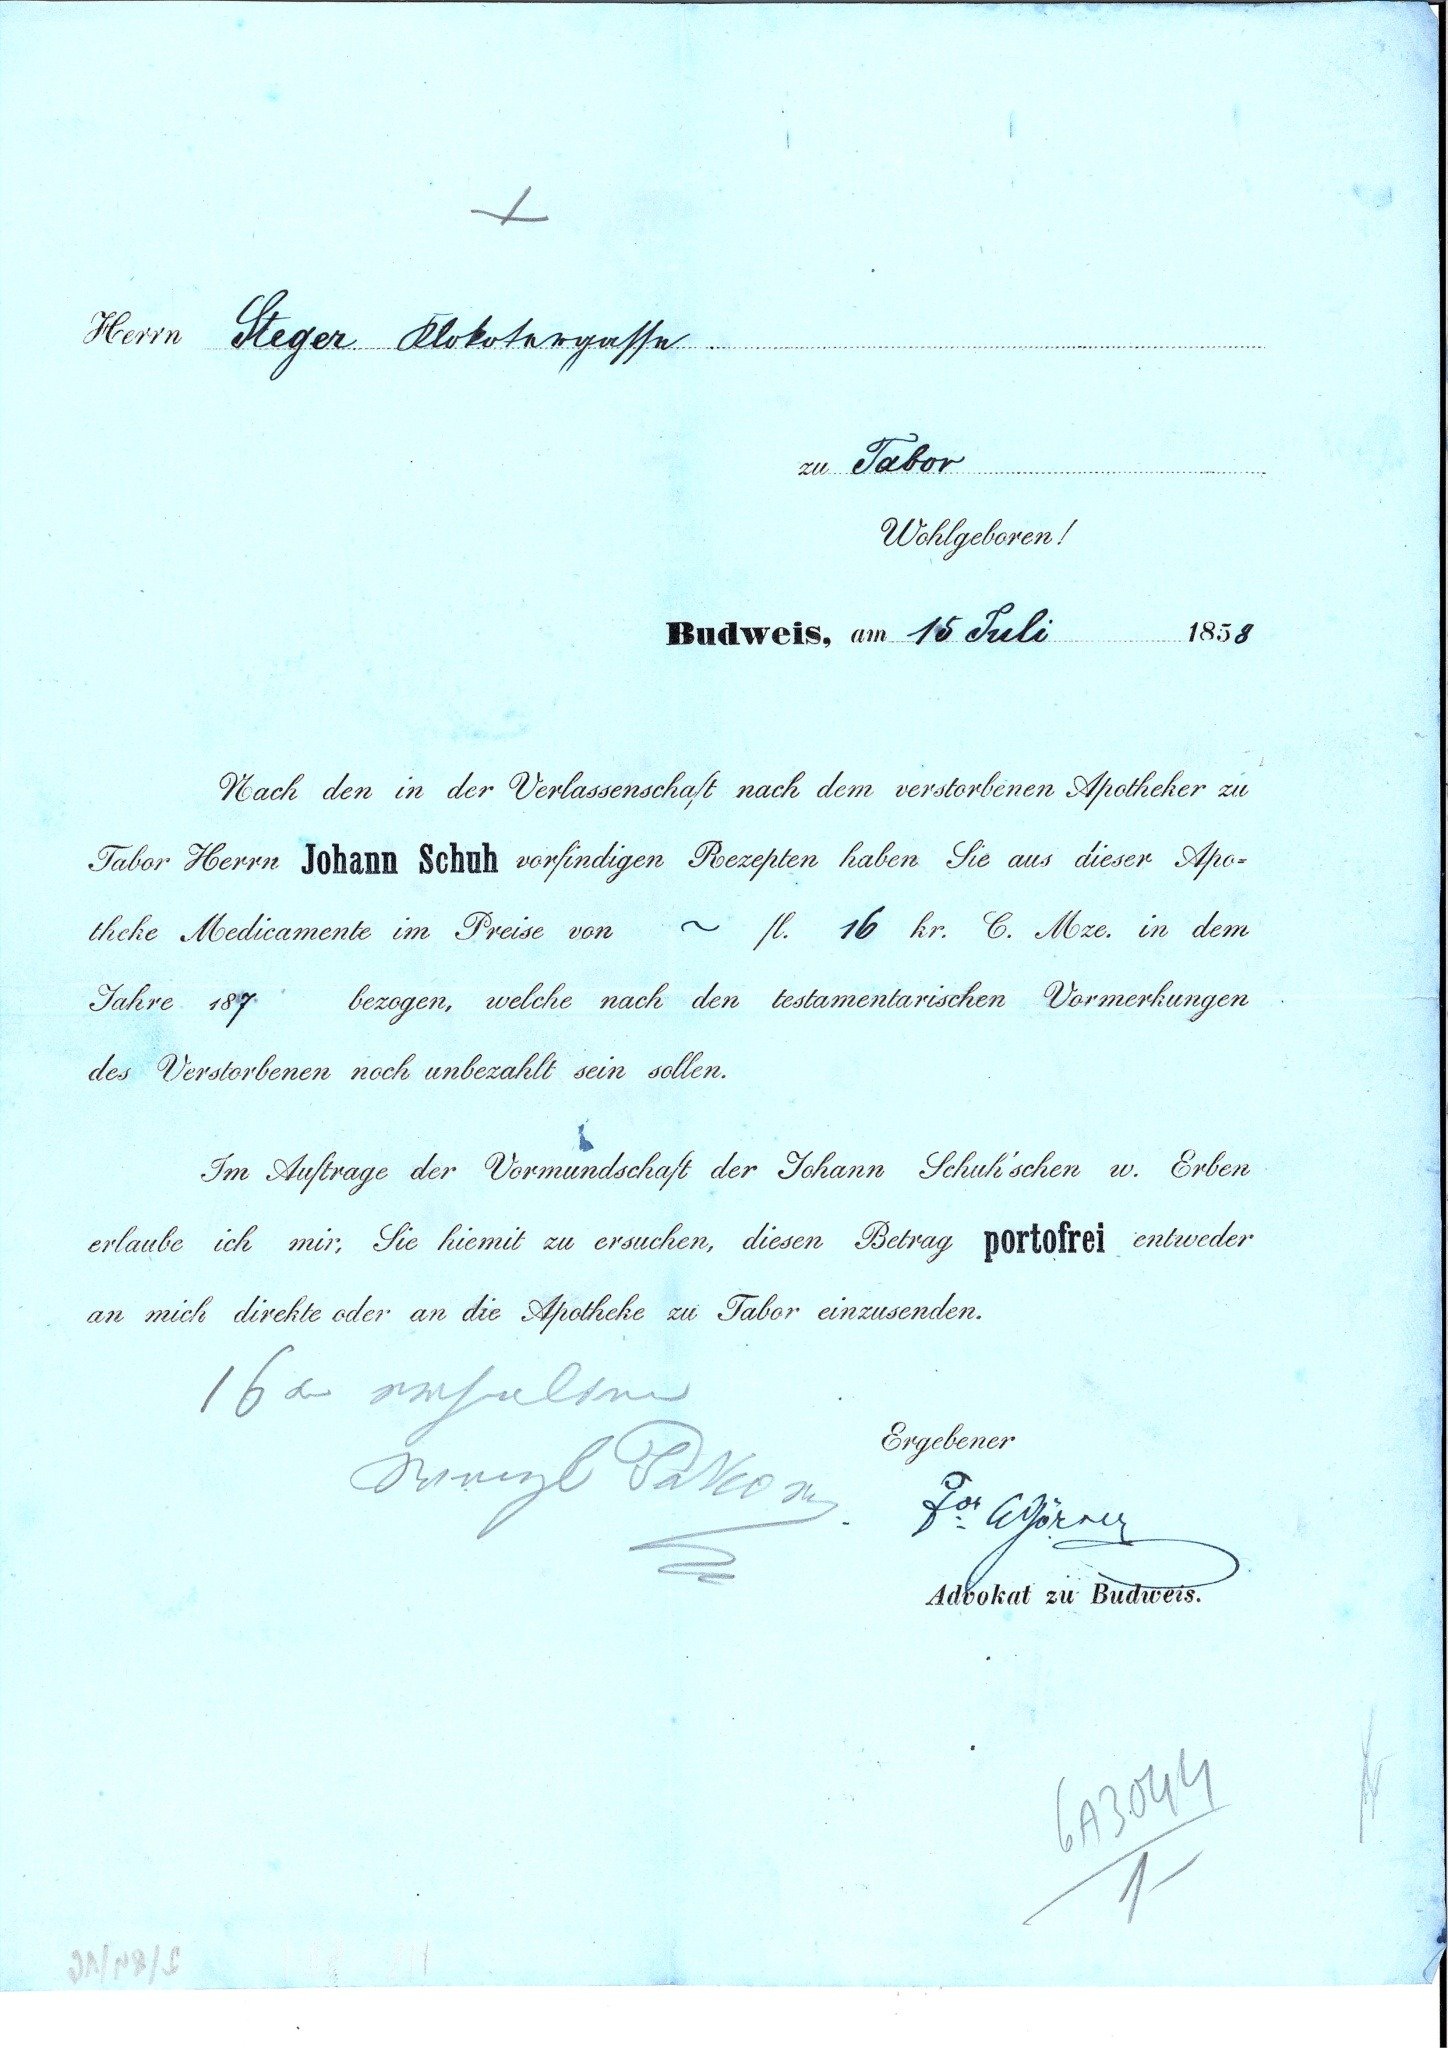 Herrn Steger Klokotergasse
zu Tabor
Wohlgeboren!
Budweis, am 15 Juli 1858
Nach den in der Verlassenschaft nach dem verstorbenen Apotheker zu
Tabor Herrn Johann Schuh vorfindigen Rezepten haben Sie aus dieser Apo-
theke Medicamente im Preise von ~ fl. 16 kr. C. Mze. in dem
Jahre 187 bezogen, welche nach den testamentarischen Vormerkungen
des Verstorbenen noch unbezahlt sein sollen.
Im Auftrage der Vormundschaft der Johann Schuh'schen w. Erben
erlaube ich mir, Sie hiemit zu ersuchen, diesen Betrag portofrei entweder
an mich direkte oder an die Apotheke zu Tabor einzusenden.
16
Ergebener
Advokat zu Budweis.
6A3044
1